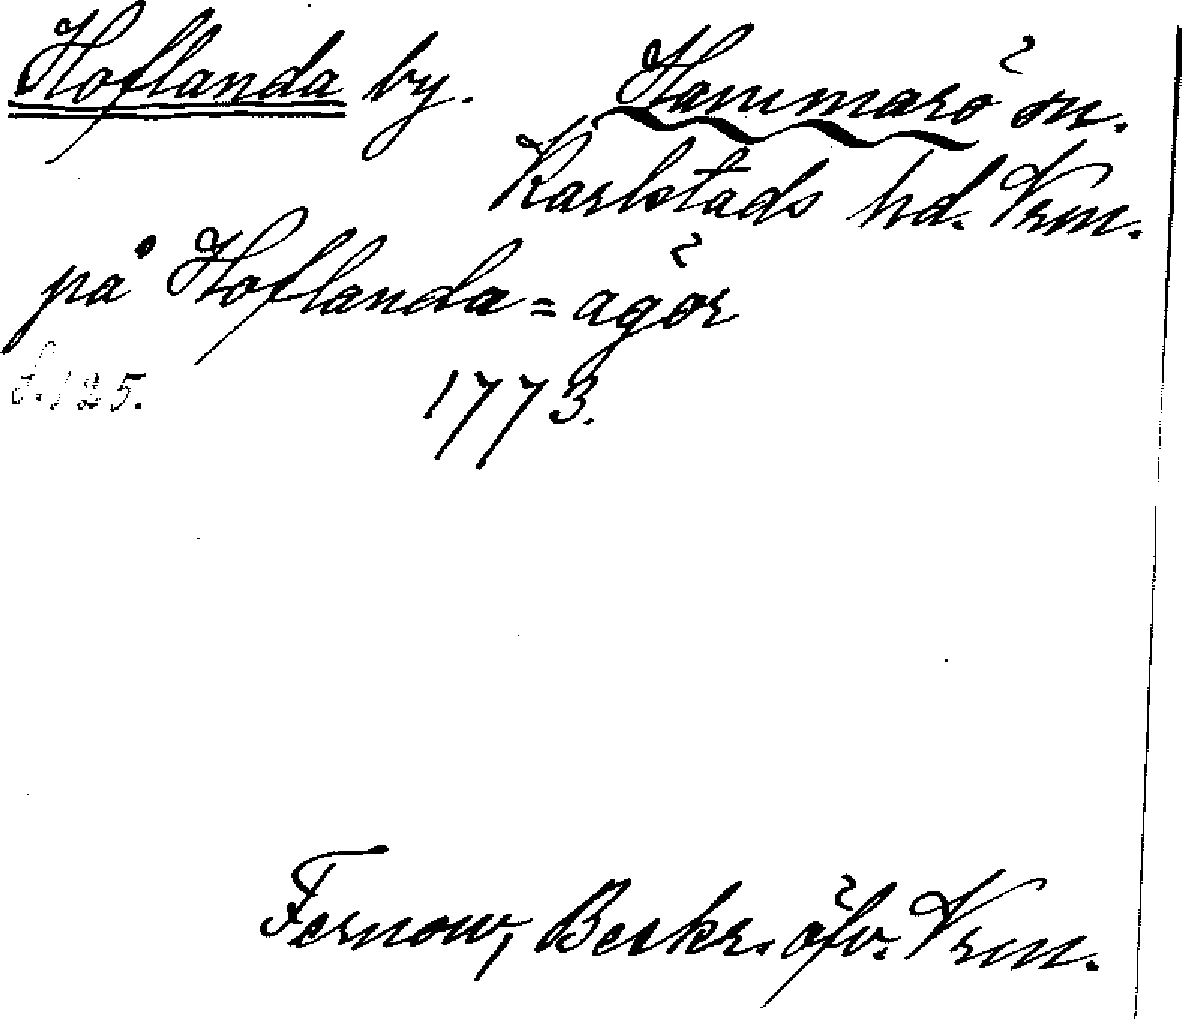 Hoflanda by. Hammarö sn.
Karlstads hd. Vrm.
på Hoflanda=ägor
s. 125. 1773.
Fernow, Beskr. öfv. Vrm.